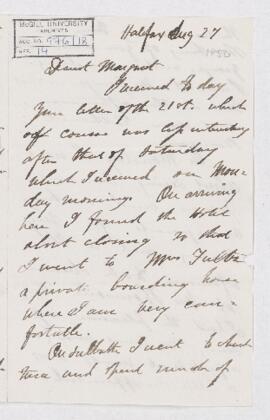 McGILL UNIVERSITY
ARCHIVES
ACC. NO. 976/18
REF. 14
Halifax Aug 27
1850
Dearest Margaret
I received to day
your letter of the 21st. which
off course was less interesting
after that of Saturday
which I received on Mon-
day morning. On arriving
here I found the Hotel
about closing so that
I went to Mrs
a private boarding house
where I am very com-
fortable.
On Sabbath I went to church
twice and spent